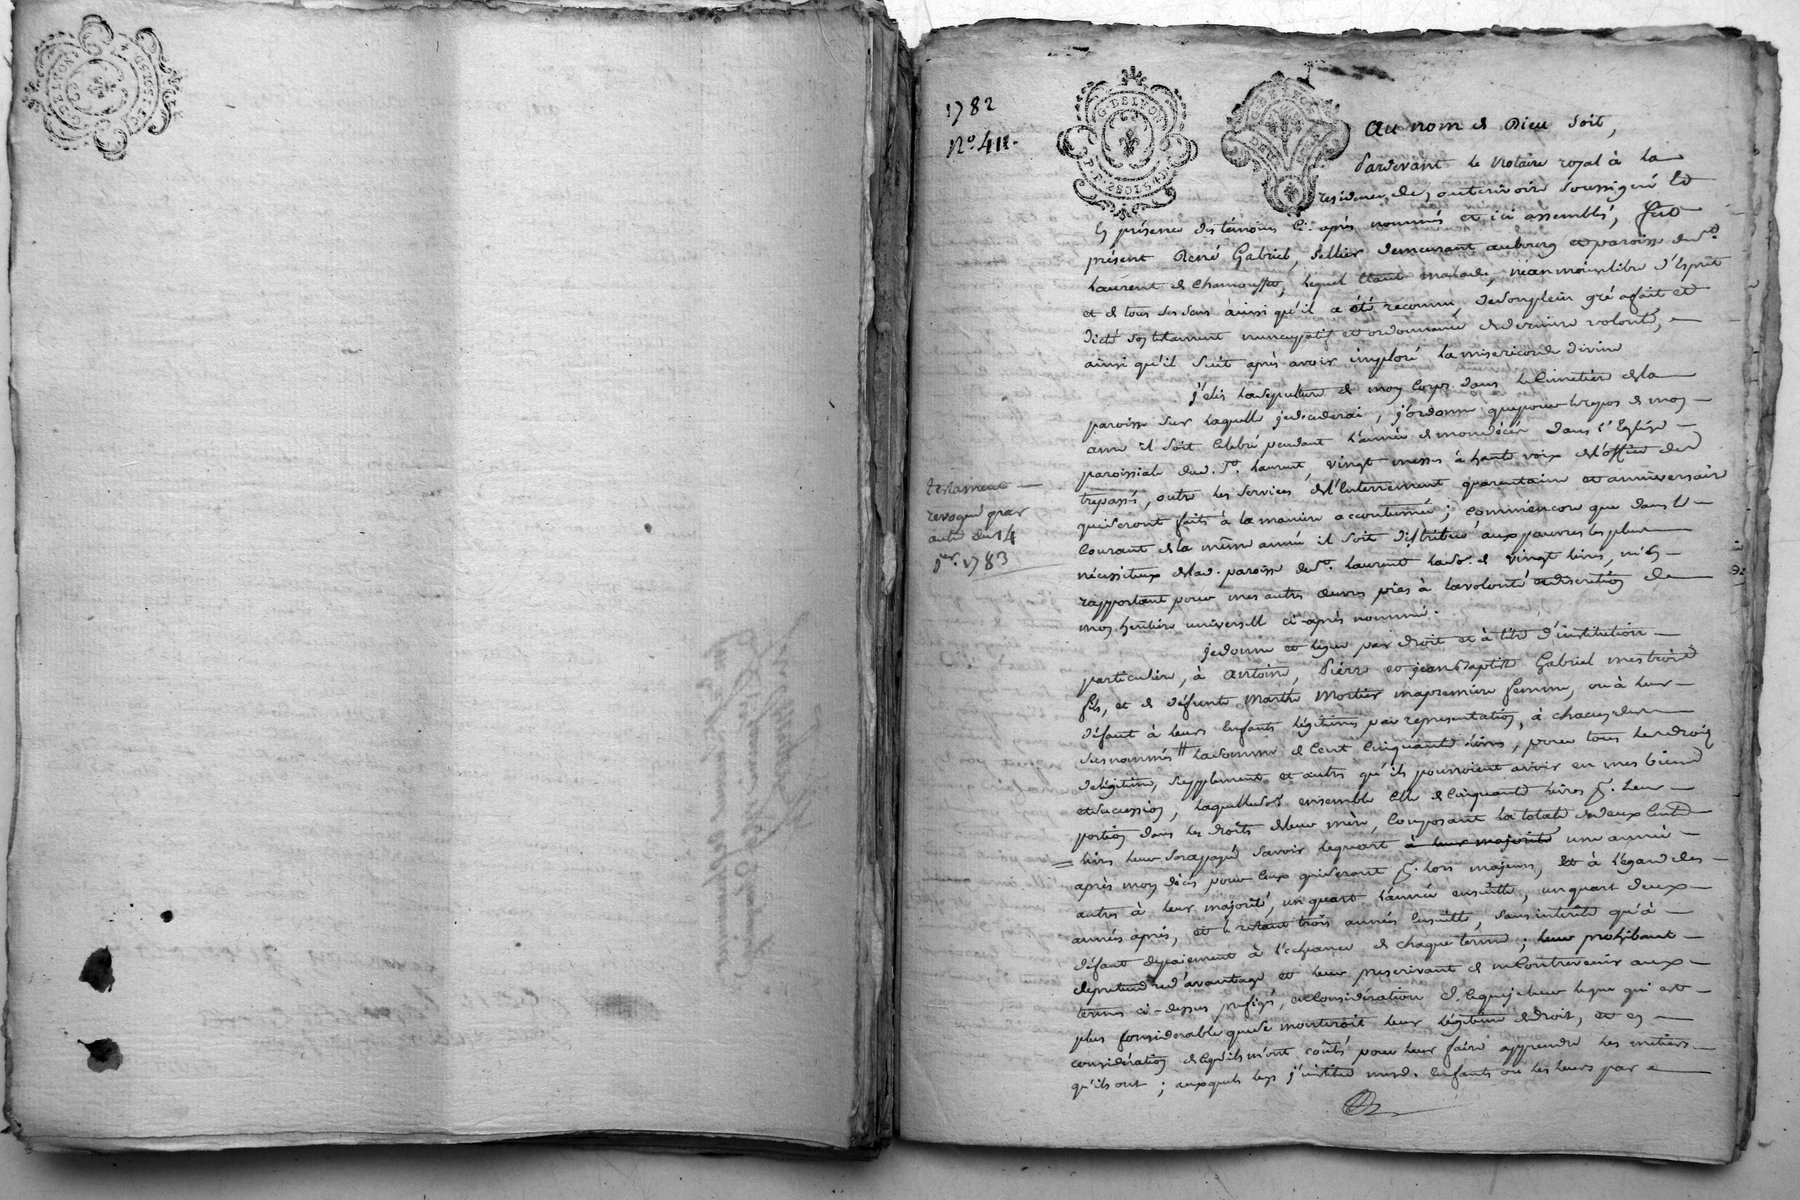 G. DE LYON
1782
No. 411.
G. DE LYON
Au nom de Dieu soit,
Pardevant le Notaire royal à la
residence de soussigné Et
En présence des témoins ci-après nommés et ici assemblés, fut
présent René Gabriel, sellier demeurant au bourg et paroisse de St.
Laurent de Chamousset, lequel étant malade, néanmoins libre d'Esprit
et de tous ses sens ainsi qu'il a été reconnu, de son plein gré a fait et
dicté son testament nuncupatif et ordonnance de derniere volonté,
ainsi qu'il suit après avoir imploré la misericorde divine
j'élis la sépulture de mon corps dans le Cimetière de la
paroisse sur laquelle je décéderai, j'ordonne que pour le repos de mon
ame il soit célébré pendant l'année de mon décès dans l'Eglise
paroissiale dud. St. Laurent, vingt messes à haute voix de l'office des
trepassés, outre les services de l'Enterrement quarantaine et anniversaire
qui seront faits à la manière accoutumée; comm'encore que dans le
courant de la même année il soit distribué aux pauvres les plus
nécessiteux de lad. paroisse de St. Laurent la so. de vingt livres, m'en
rapportant pour mes autres œuvres pies à la volonté et discretion de
mon heritière universelle ci-après nommée.
testament
revoqué par
autre du 14
1783
je donne et legue par droit et à titre d'institution
particulière, à Antoine, Pierre et jean Baptiste Gabriel mes trois
fils, et de défunte Marthe Mortier ma premiere femme, ou à leur
défaut à leurs enfants légitimes par representation, à chacun des
susnommés la somme de Cent Cinquante livres, pour tous les droits
de légitime, supplément et autres qu'ils pourroient avoir en mes biens
et succession, laquelle so. ensemble celle de Cinquante livres p. leur
portion dans les droits de leur mère, composant la totale de deux Cents
livres leur sera payé savoir le quart à leur majorité une année
après mon décès pour ceux qui seront p. lors majeurs, et à l'égard des
autres à leur majorité, un quart l'année ensuitte, un quart deux
années après, et le restant trois années ensuitte, sans interêt qu'à
défaut de paiement à l'echeance de chaque terme; leur prohibant
de prétendre d'avantage et leur prescrivant de ne contrevenir aux
termes ci-dessus préfigés, en considération de ce que je leur legue qui est
plus considerable que se monteroit leur légitime de droit, et en
considération de ce qu'ils m'ont coûtés pour leur faire apprendre les métiers
qu'ils ont; auxquels legs j'institue mesd. enfants ou les leurs par